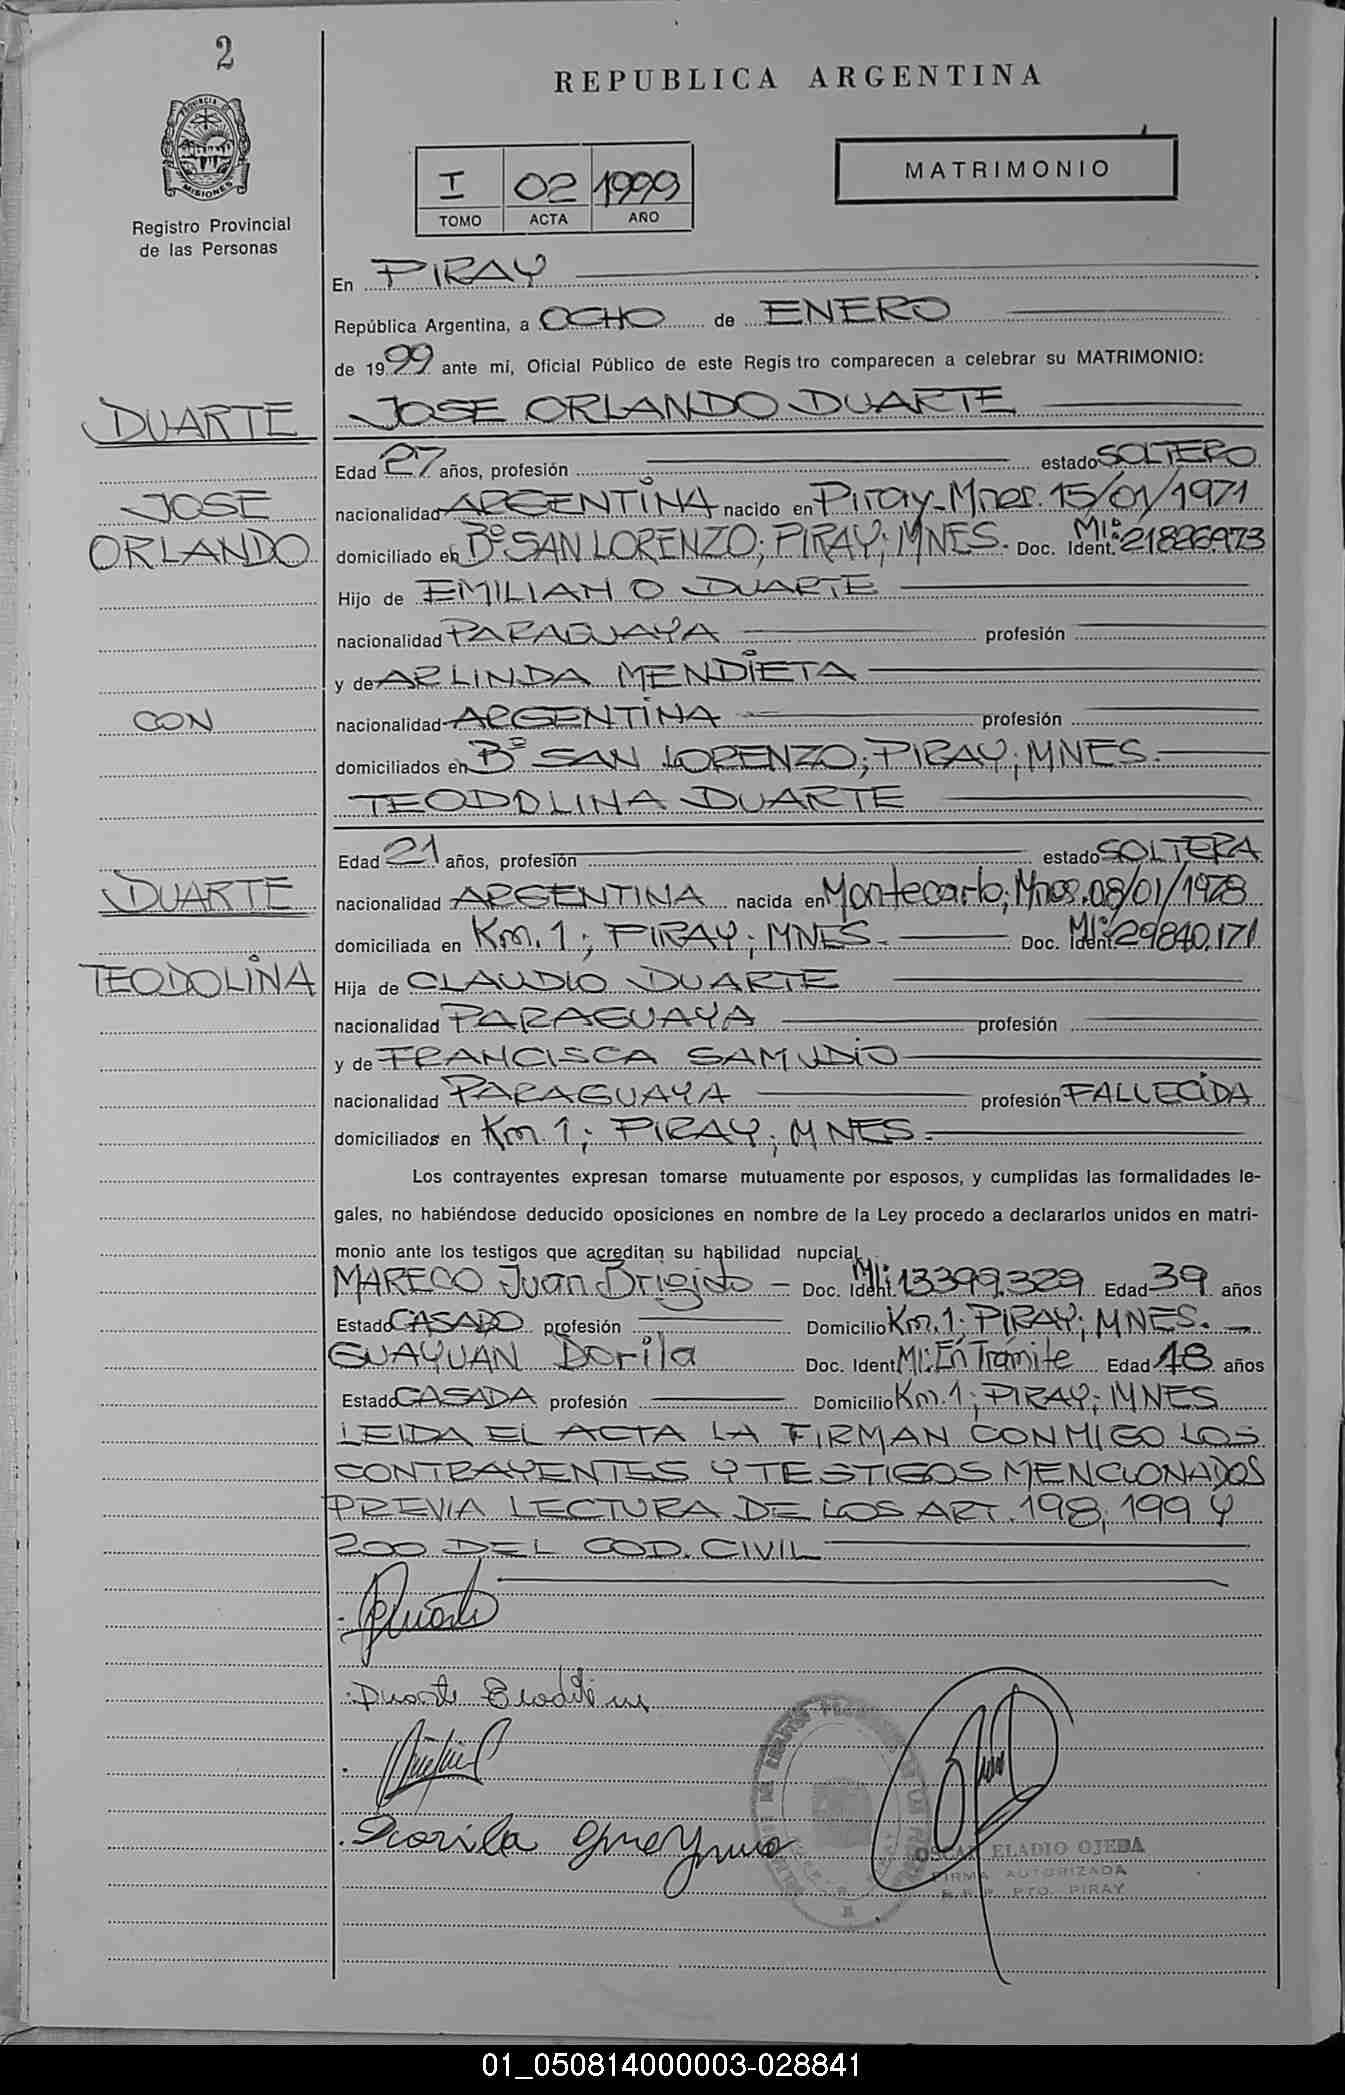 2
REPUBLICA ARGENTINA
PROVINCIA DE
MISIONES
MATRIMONIO
I 02 1999
TOMO ACTA AÑO
Registro Provincial
de las Personas
En PIRAY
República Argentina, a OCHO de ENERO
de 1999 ante mí, Oficial Público de este Registro comparecen a celebrar su MATRIMONIO:
DUARTE JOSE ORLANDO DUARTE
Edad 27 años, profesión estado SOLTERO
JOSE nacionalidad ARGENTINA nacido en Piray-Mnes. 15/01/1971
ORLANDO domiciliado en Bº SAN LORENZO; PIRAY; MNES. Doc. Ident. MI: 21826973
Hijo de EMILIANO DUARTE
nacionalidad PARAGUAYA profesión
y de ARLINDA MENDIETA
CON nacionalidad ARGENTINA profesión
domiciliados en Bº SAN LORENZO; PIRAY; MNES.
TEODOLINA DUARTE
Edad 21 años, profesión estado SOLTERA
DUARTE nacionalidad ARGENTINA nacida en Montecarlo; Mnes. 08/01/1978
domiciliada en Km. 1; PIRAY; MNES. Doc. Ident MI: 29840.171
TEODOLINA Hija de CLAUDIO DUARTE
nacionalidad PARAGUAYA profesión
y de FRANCISCA SAMUDIO
nacionalidad PARAGUAYA profesión FALLECIDA
domiciliados en Km. 1; PIRAY; MNES.
Los contrayentes expresan tomarse mutuamente por esposos, y cumplidas las formalidades le-
gales, no habiéndose deducido oposiciones en nombre de la Ley procedo a declararlos unidos en matri-
monio ante los testigos que acreditan su habilidad nupcial.
MARECO Juan Brigido - Doc. Ident. MI: 13399.329 Edad 39 años
Estado CASADO profesión Domicilio Km. 1; PIRAY; MNES.
GUAYUAN Dorila Doc. Ident MI: En Trámite Edad 18 años
Estado CASADA profesión Domicilio Km. 1; PIRAY; MNES
LEIDA EL ACTA LA FIRMAN CONMIGO LOS
CONTRAYENTES Y TESTIGOS MENCIONADOS
PREVIA LECTURA DE LOS ART. 198, 199 Y
200 DEL COD. CIVIL
Duarte
Dorila
OSCAR ELADIO OJEDA
FIRMA AUTORIZADA
R.P.P. PTO. PIRAY
01_050814000003-028841